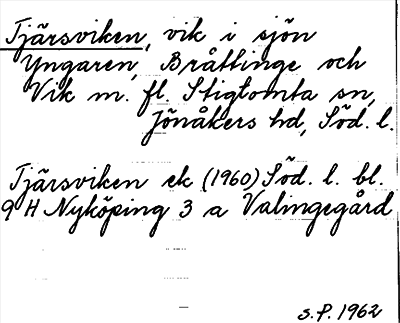 Tjärsviken, vik i sjön
Yngaren, Bråttinge och
Vik m. fl. Stigtomta sn,
Jönåkers hd, Söd. l.
Tjärsviken ek (1960) Söd. l. bl.
9 H Nyköping 3 a Valingegård
S.P. 1962